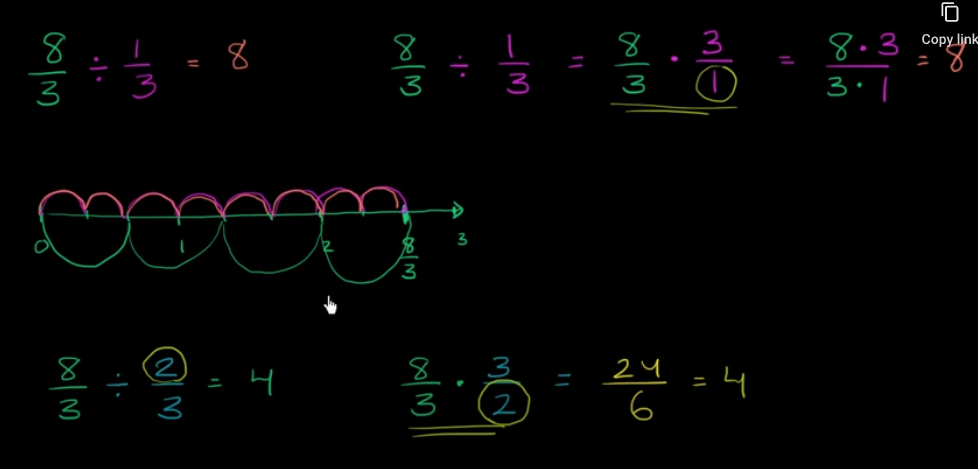 Copy link
8/3 ÷ 1/3 = 8
8/3 ÷ 1/3 = 8/3 · 3/1 = 8·3/3·1 = 8
0 1 2 8/3 3
8/3 ÷ 2/3 = 4
8/3 · 3/2 = 24/6 = 4